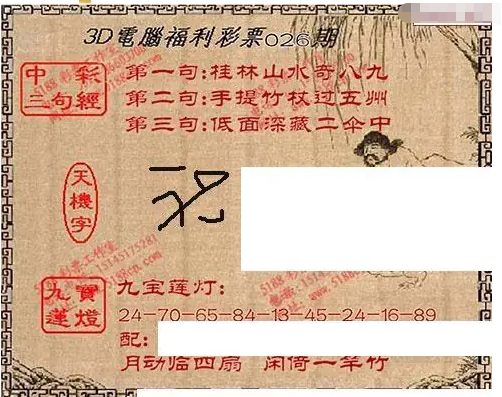 3D電腦福利彩票026期
中彩
三句經
第一句:桂林山水奇八九
第二句:手提竹杖过五州
第三句:低面深藏二伞中
天機字
九寶
蓮燈
九宝莲灯:
24-70-65-84-13-45-24-16-89
配:
月动临四扇 闲倚一竿竹